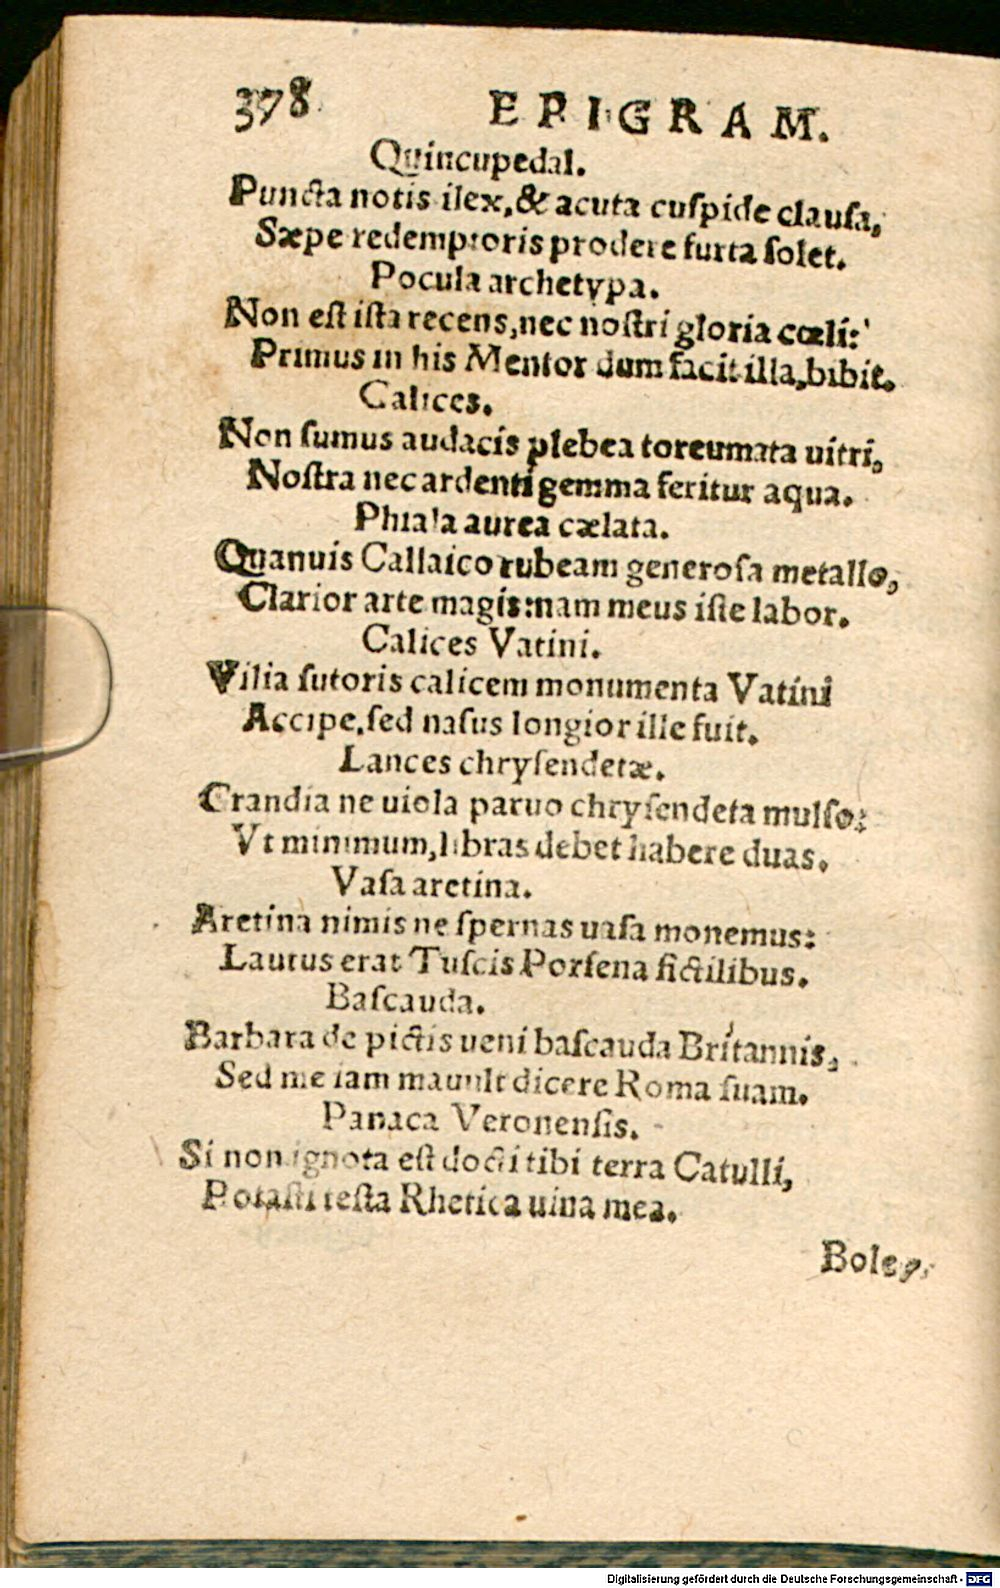 378 EPIGRAM.
Quincupedal.
Puncta notis ilex, & acuta cuſpide clauſa,
Sæpe redemptoris prodere furta ſolet.
Pocula archetypa.
Non eſt iſta recens, nec noſtri gloria cœli:
Primus in his Mentor dum facit illa, bibit.
Calices.
Non ſumus audacis plebea toreumata uitri,
Noſtra nec ardenti gemma feritur aqua.
Phiala aurea cælata.
Quanuis Callaico rubeam generoſa metallo,
Clarior arte magis: nam meus iſte labor.
Calices Vatini.
Vilia ſutoris calicem monumenta Vatini
Accipe, ſed naſus longior ille fuit.
Lances chryſendetæ.
Grandia ne uiola paruo chryſendeta mulſo:
Vt minimum, libras debet habere duas.
Vaſa aretina.
Aretina nimis ne ſpernas uaſa monemus:
Lautus erat Tuſcis Porſena fictilibus.
Baſcauda.
Barbara de pictis ueni baſcauda Britannis,
Sed me iam mauult dicere Roma ſuam.
Panaca Veronenſis.
Si non ignota eſt docti tibi terra Catulli,
Potaſti teſta Rhetica uina mea.
Digitalisierung gefördert durch die Deutsche Forschungsgemeinschaft - DFG